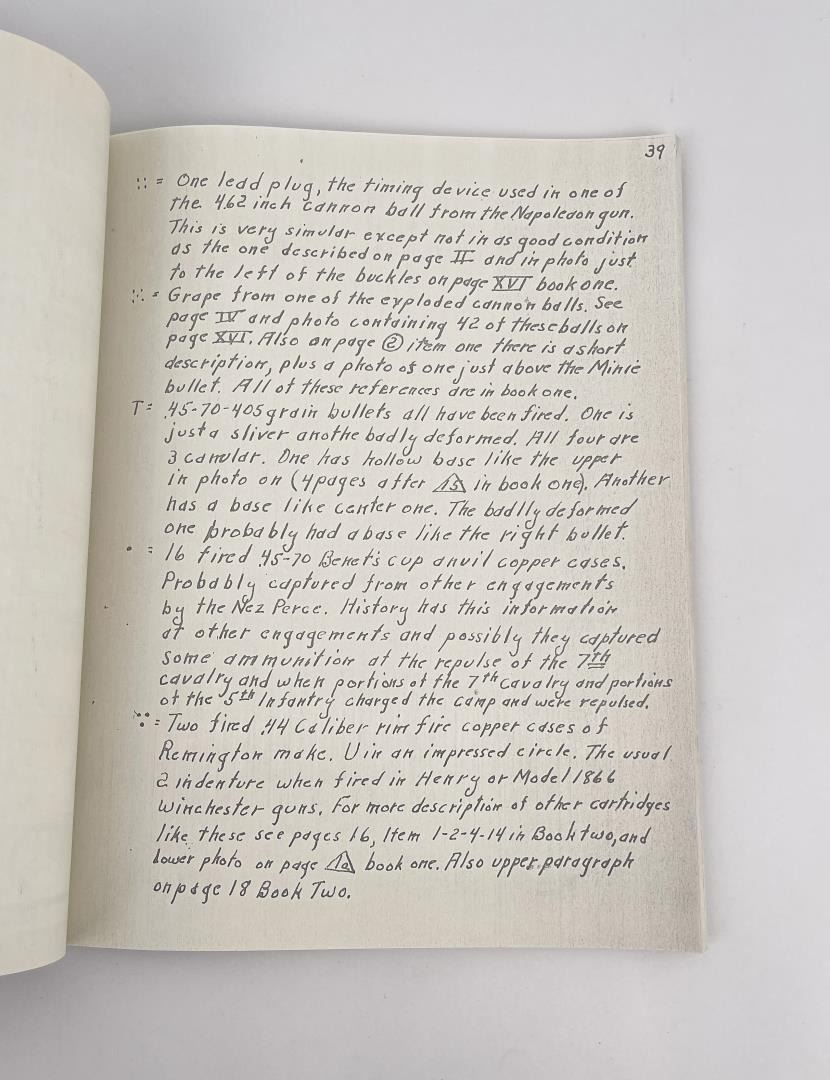 39
:: = One lead plug, the timing device used in one of
the 4.62 inch cannon ball from the Napoleon gun.
This is very simular except not in as good condition
as the one described on page II and in photo just
to the left of the buckles on page XVI book one.
:·: = Grape from one of the exploded cannon balls. See
page IV and photo containing 42 of these balls on
page XVI. Also on page ② item one there is a short
description, plus a photo of one just above the Minie
bullet. All of these references are in book one.
T = .45-70-405 grain bullets all have been fired. One is
just a sliver anothe badly deformed. All four are
3 canular. One has hollow base like the upper
in photo on (4 pages after 15 in book one). Another
has a base like center one. The badlly deformed
one probably had a base like the right bullet.
• = 16 fired .45-70 Benet's cup anvil copper cases.
Probably captured from other engagements
by the Nez Perce. History has this information
at other engagements and possibly they captured
some ammunition at the repulse of the 7th
cavalry and when portions of the 7th Cavalry and portions
of the 5th Infantry charged the camp and were repulsed.
:·: = Two fired .44 Caliber rim fire copper cases of
Remington make. U in an impressed circle. The usual
2 indenture when fired in Henry or Model 1866
Winchester guns. For more description of other cartridges
like these see pages 16, Item 1-2-4-14 in Book two, and
lower photo on page book one. Also upper paragraph
on page 18 Book Two.